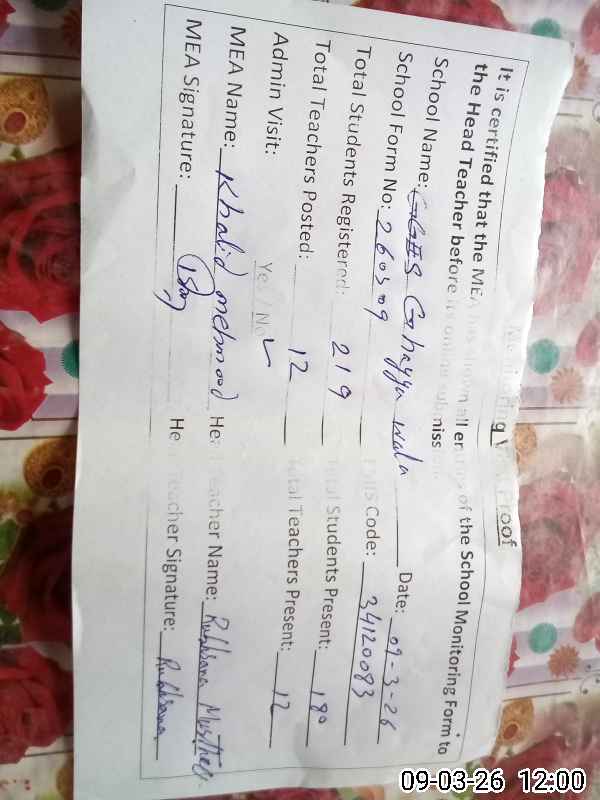 Monitoring Visit Proof
It is certified that the MEA has shown all entries of the School Monitoring Form to
the Head Teacher before its online submission
School Name: GGHS Ghayyu wala Date: 09-3-26
School Form No: 260309 EMIS Code: 34120083
Total Students Registered: 219 Total Students Present: 180
Total Teachers Posted: 12 Total Teachers Present: 12
Admin Visit: Yes / No ✓
MEA Name: Khalid mehmood Head Teacher Name: Rukhsana
MEA Signature: Head Teacher Signature: Rukhsana
09-03-26 12:00